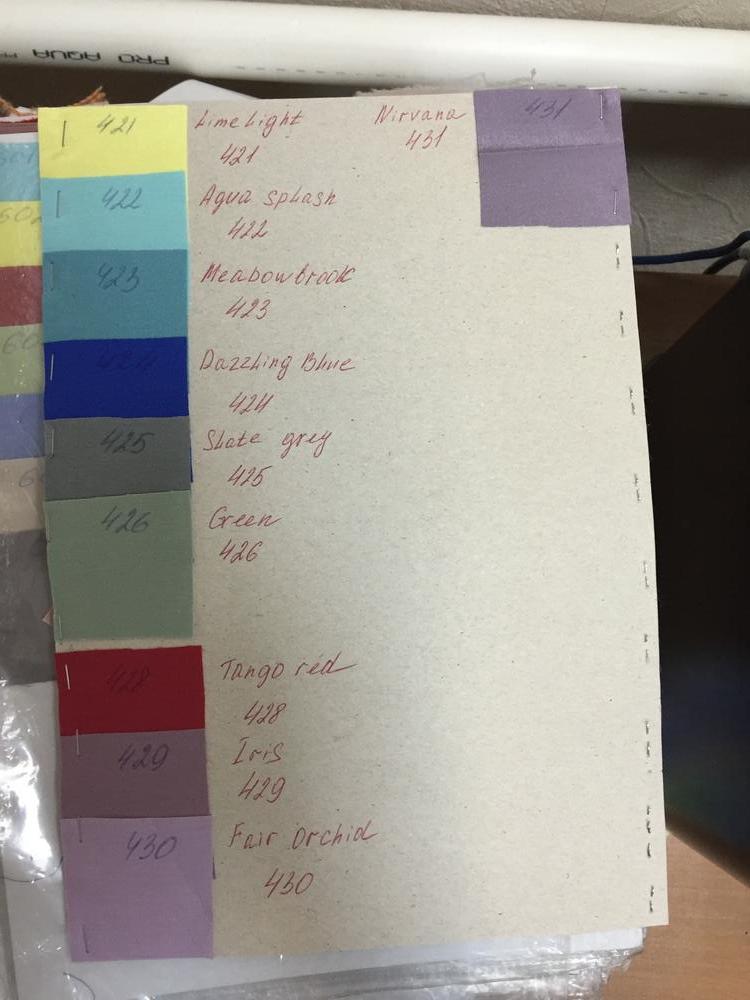 PRO AQUA
421
Lime Light
421
Nirvana
431
431
422
Aqua splash
422
423
Meabowbrook
423
424
Dazzling Blue
424
425
Slate grey
425
426
Green
426
428
Tango red
428
429
Iris
429
430
Fair Orchid
430